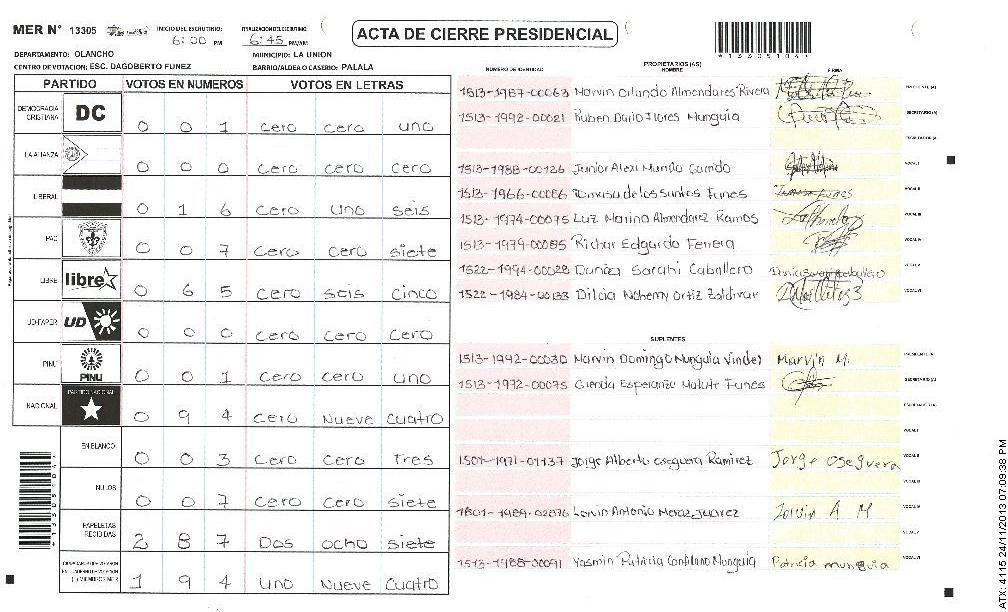 MER N° 13305
INICIO DEL ESCRUTINIO: 6:00 PM
FINALIZACION DEL ESCRUTINIO: 6:45 PM/AM
ACTA DE CIERRE PRESIDENCIAL
DEPARTAMENTO: OLANCHO
MUNICIPIO: LA UNION
CENTRO DE VOTACION: ESC. DAGOBERTO FUNEZ
BARRIO/ALDEA O CASERIO: PALALA
PARTIDO VOTOS EN NUMEROS VOTOS EN LETRAS
DEMOCRACIA CRISTIANA DC 0 0 1 cero cero uno
LA ALIANZA 0 0 0 cero cero cero
LIBERAL 0 1 6 cero uno seis
PAC 0 0 7 cero cero siete
LIBRE libre 0 6 5 cero seis cinco
UD-FAPER UD 0 0 0 cero cero cero
PINU PINU 0 0 1 cero cero uno
NACIONAL PARTIDO NACIONAL 0 9 4 cero nueve cuatro
EN BLANCO 0 0 3 cero cero tres
NULOS 0 0 7 cero cero siete
PAPELETAS RECIBIDAS 2 8 7 Dos ocho siete
1 9 4 uno nueve cuatro
NUMERO DE IDENTIDAD
PROPIETARIOS (AS)
NOMBRE
FIRMA
1513-1987-00063 Marvin Orlando Almendares Rivera PRESIDENTE (A)
1513-1992-00021 Ruben Dario Flores Munguia SECRETARIO (A)
ESCRUTADOR (A)
1513-1988-00126 Junior Alexi Murillo Garrido VOCAL I
1513-1966-00086 Tomasa de los Santos Funes VOCAL II
1513-1974-00075 Luz Marina Almendarez Ramos VOCAL III
1513-1979-00085 Richar Edgardo Ferrera VOCAL IV
1522-1994-00028 Dunia Sarahi Caballero VOCAL V
1522-1984-00133 Dilcia Nohemy Ortiz Zaldivar VOCAL VI
SUPLENTES
1513-1992-00030 Marvin Domingo Munguia Marvin M. PRESIDENTE (A)
1513-1972-00075 Glenda Esperanza Matute Funes SECRETARIO (A)
ESCRUTADOR (A)
VOCAL I
1501-1971-01137 Jorge Alberto oseguera Ramirez Jorge oseguera VOCAL II
VOCAL III
1801-1989-02876 Antonio Meraz Juarez A M VOCAL IV
VOCAL V
1513-1988-00091 Yasmin Patricia Munguia Patricia munguia VOCAL VI
ATX: 4115 24/11/2013 07:09:38 PM